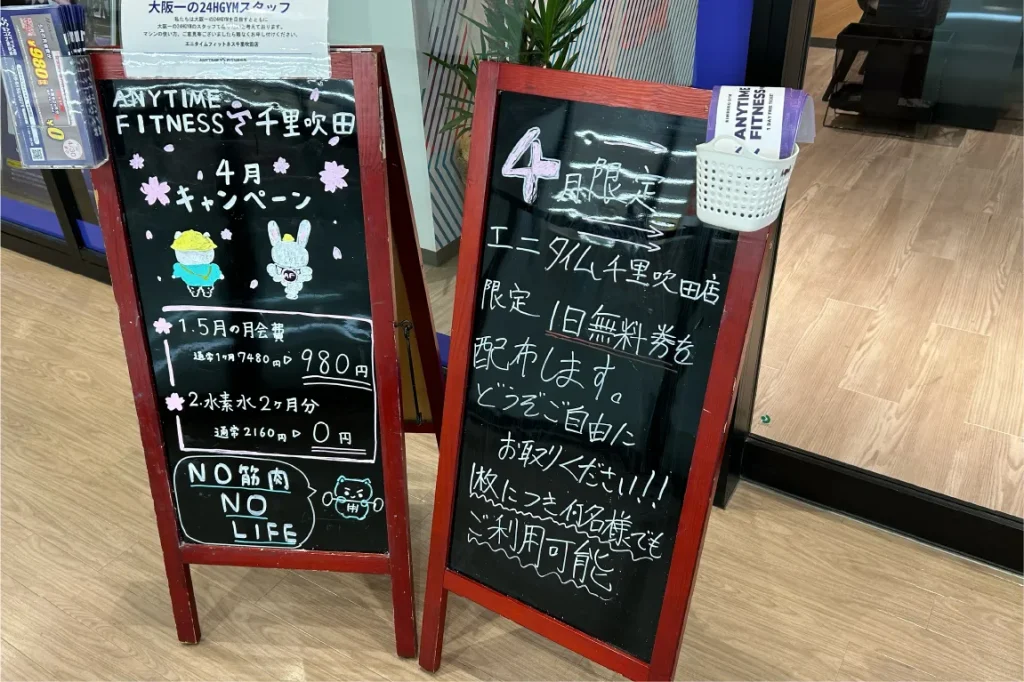 大阪一の24HGYMスタッフ
エニタイムフィットネス千里吹田店
ANYTIME
FITNESS 千里吹田
4月
キャンペーン
AF
1.5月の月会費
通常1ヶ月7480円▷ 980円
2.水素水2ヶ月分
通常2160円▷ 0円
NO筋肉
NO
LIFE
4月限定
エニタイム千里吹田店
限定 1日無料券を
配布します。
どうぞご自由に
お取りください!!
1枚につき何名様でも
ご利用可能
ANYTIME
FITNESS